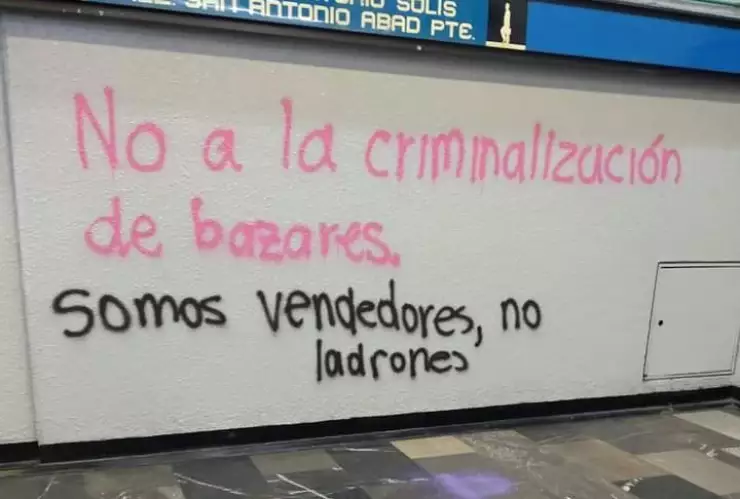 SOLIS
SAN ANTONIO ABAD PTE.
No a la criminalización
de bazares.
Somos vendedores, no
ladrones